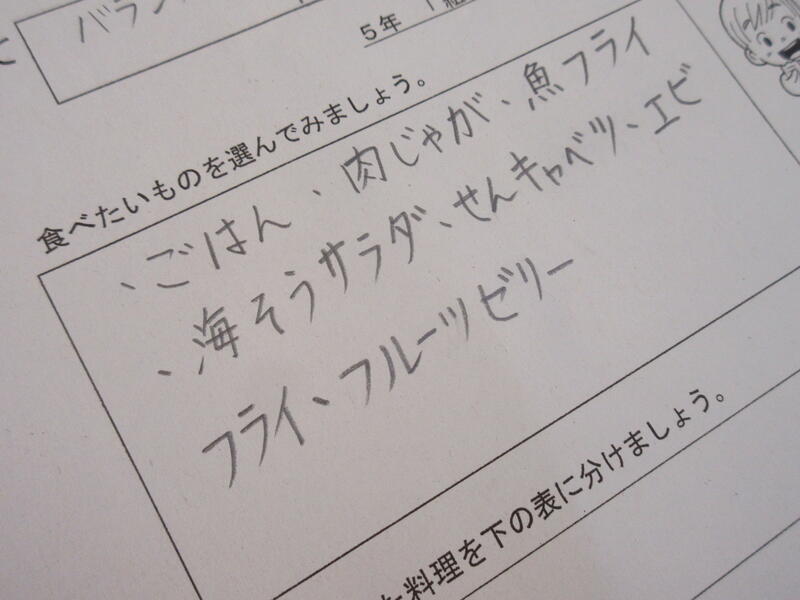 バラン
5年 1組
食べたいものを選んでみましょう。
、ごはん、肉じゃが、魚フライ
、海そうサラダ、せんキャベツ、エビ
フライ、フルーツゼリー
料理を下の表に分けましょう。